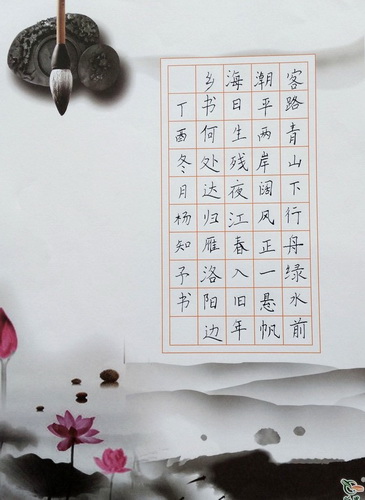 客路青山下行丹绿水前
潮平两岸阔风正一悬帆
海日生残夜江春入旧年
乡书何处达归雁洛阳边
丁酉冬月杨知予书